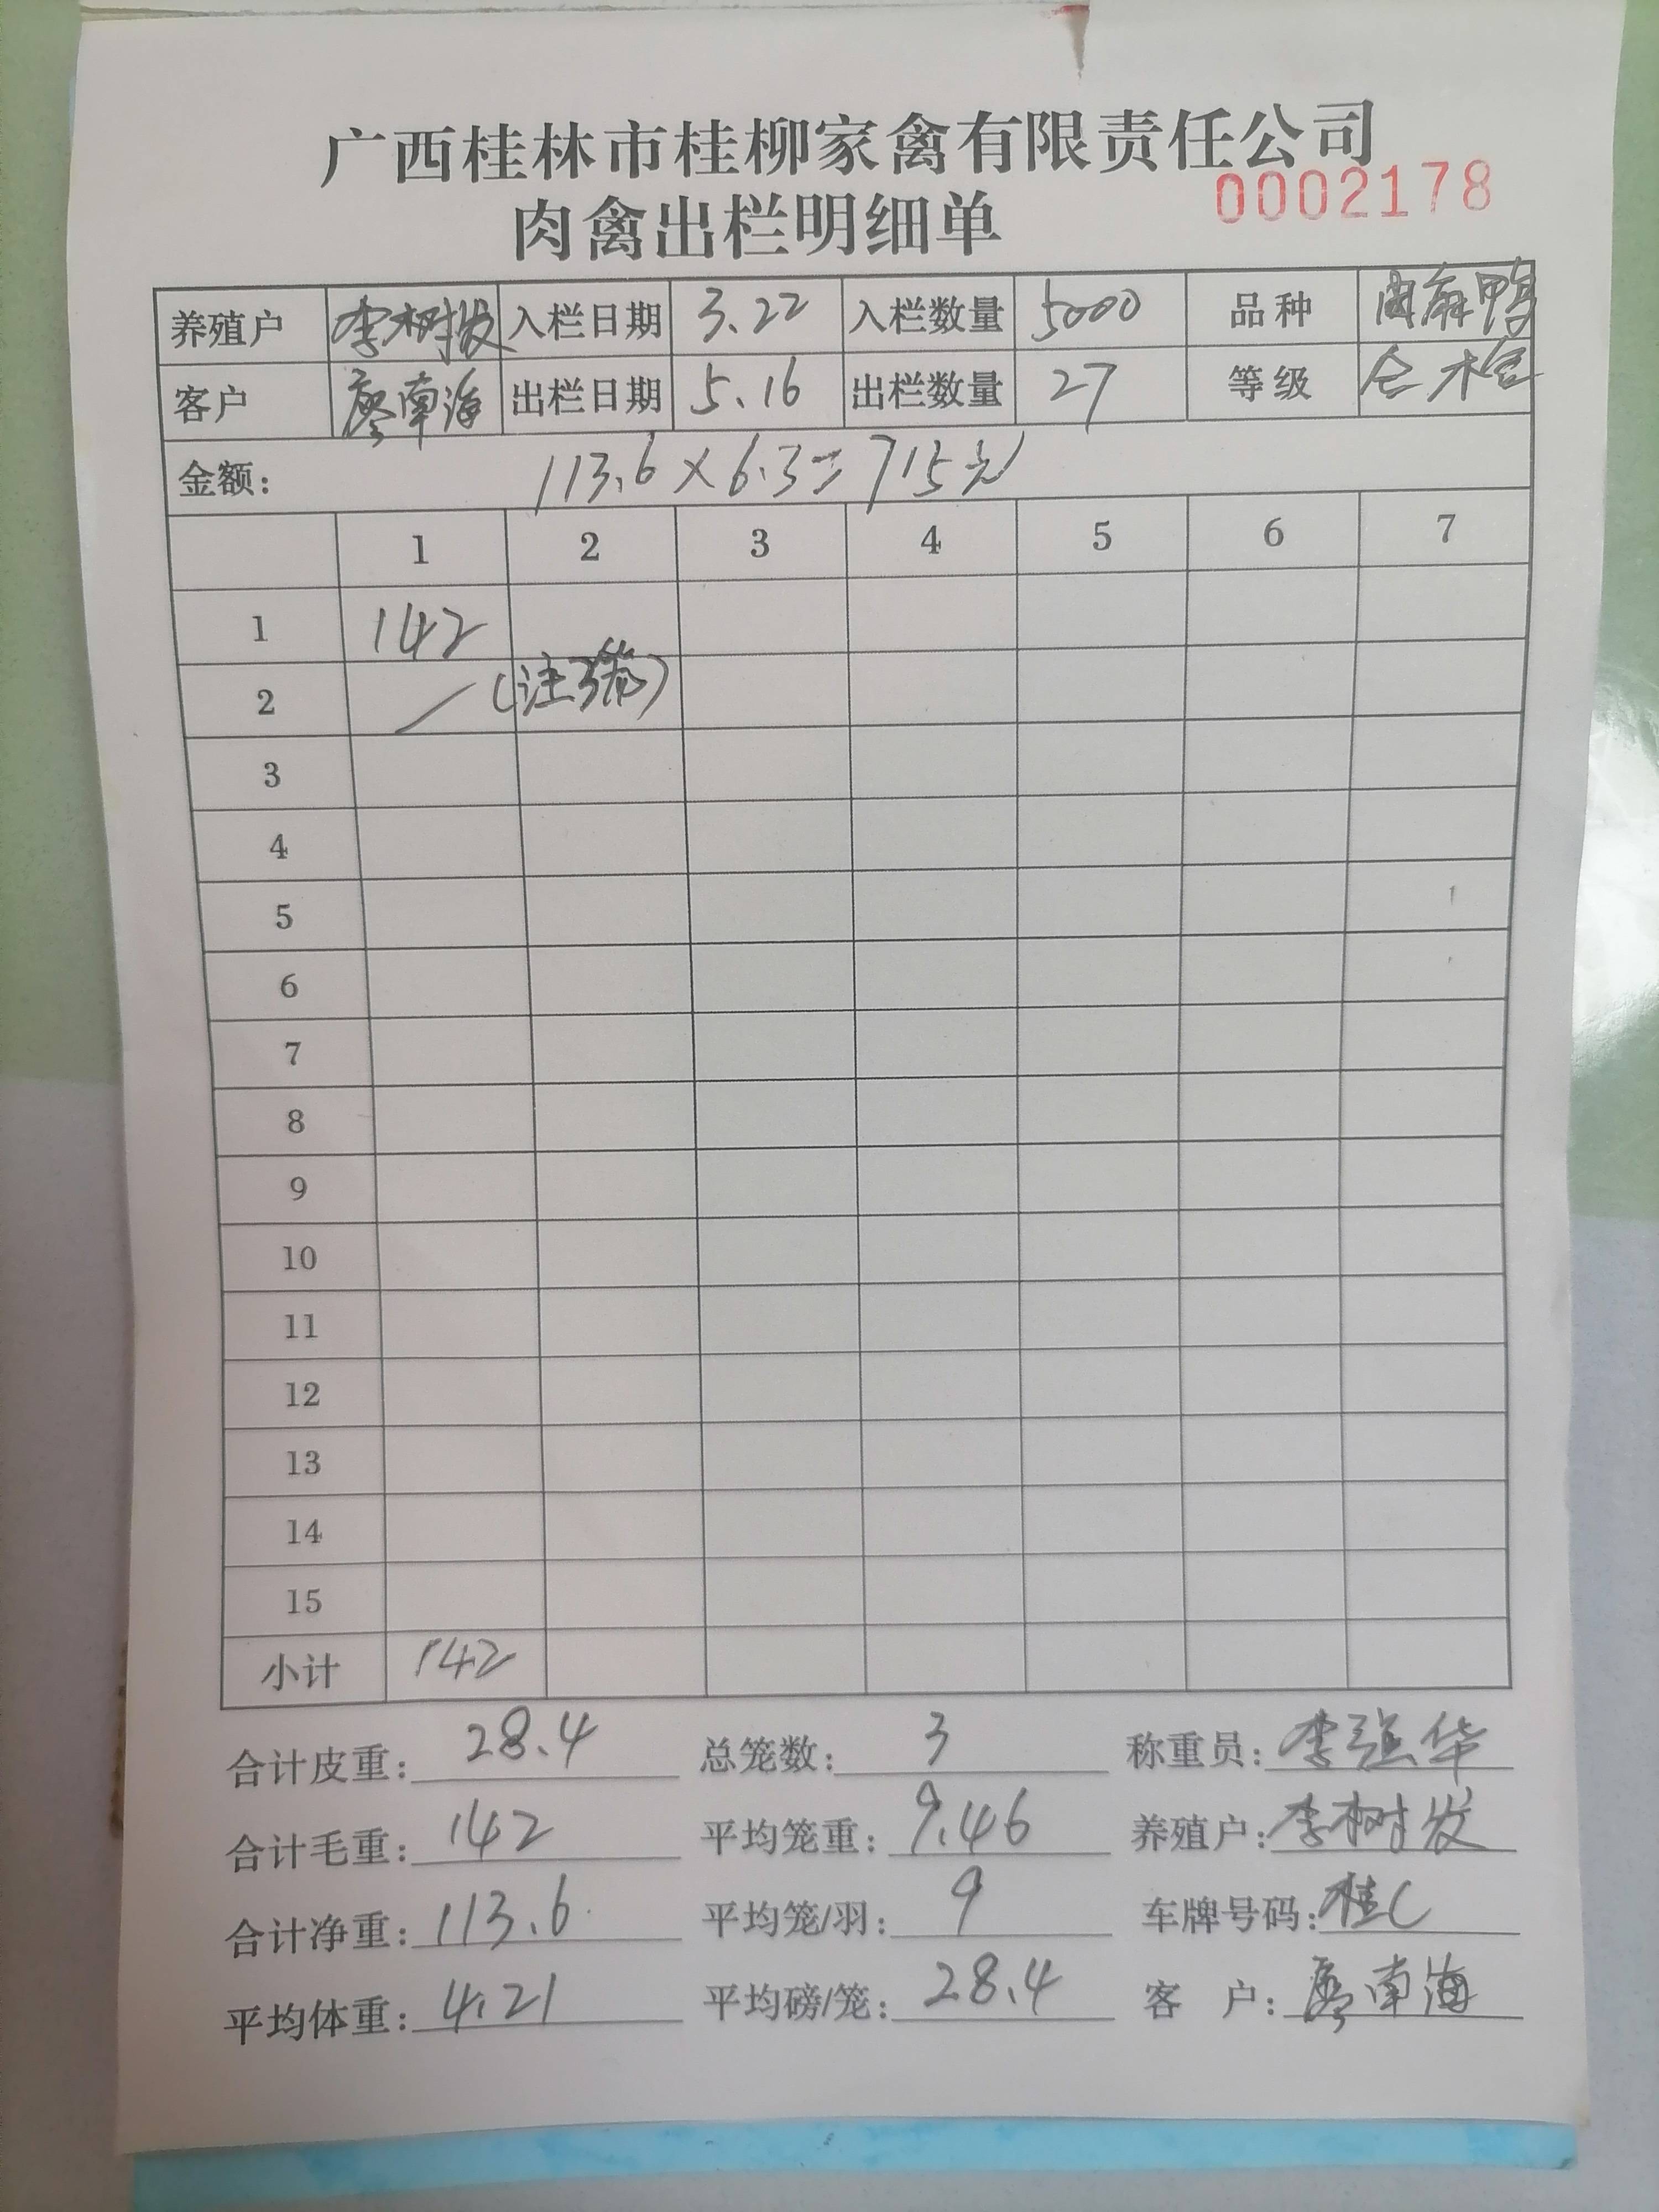 广西桂林市桂柳家禽有限责任公司
0002178
肉禽出栏明细单
养殖户 李树发 入栏日期 3.22 入栏数量 5000 品种 麻鸭
客户 廖南海 出栏日期 5.16 出栏数量 27 等级
金额: 113.6×6.3=715元
1 2 3 4 5 6 7
1 142
2 (注3笼)
3
4
5
6
7
8
9
10
11
12
13
14
15
小计 142
合计皮重: 28.4 总笼数: 3 称重员: 李强华
合计毛重: 142 平均笼重: 9.46 养殖户: 李树发
合计净重: 113.6 平均笼/羽: 9 车牌号码: 桂C
平均体重: 4.21 平均磅/笼: 28.4 客 户: 廖南海